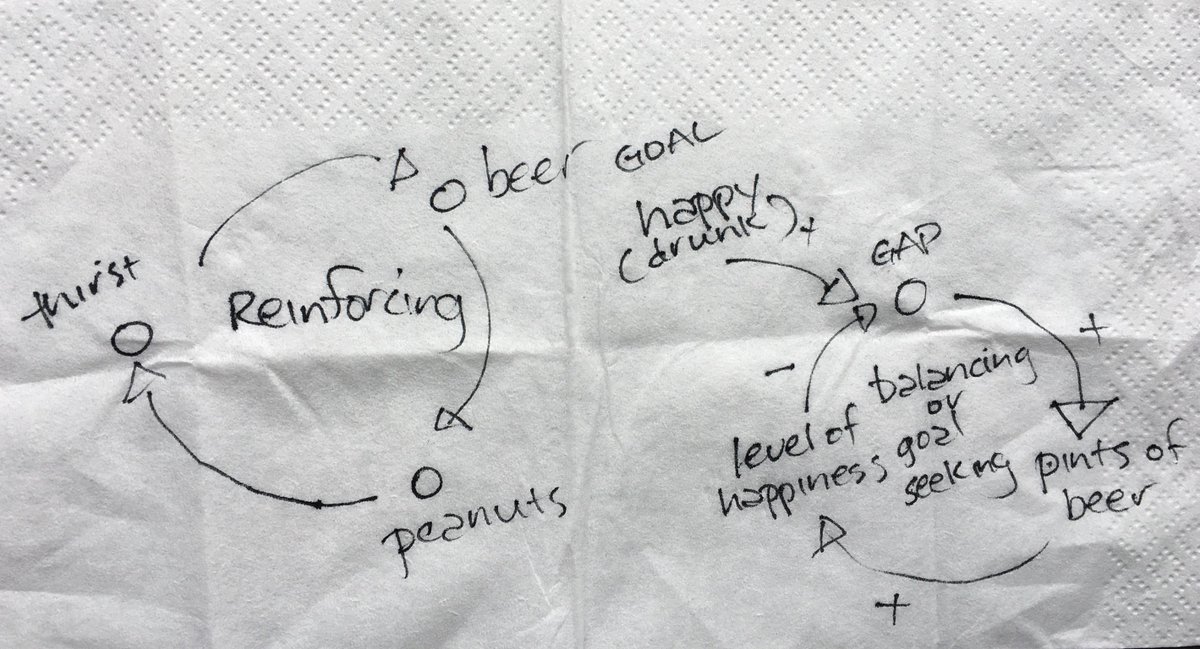 thirst
beer
Reinforcing
peanuts
GOAL
happy
(drunk)
+
GAP
+
-
level of
happiness
balancing
or
goal
seeking
pints of
beer
+